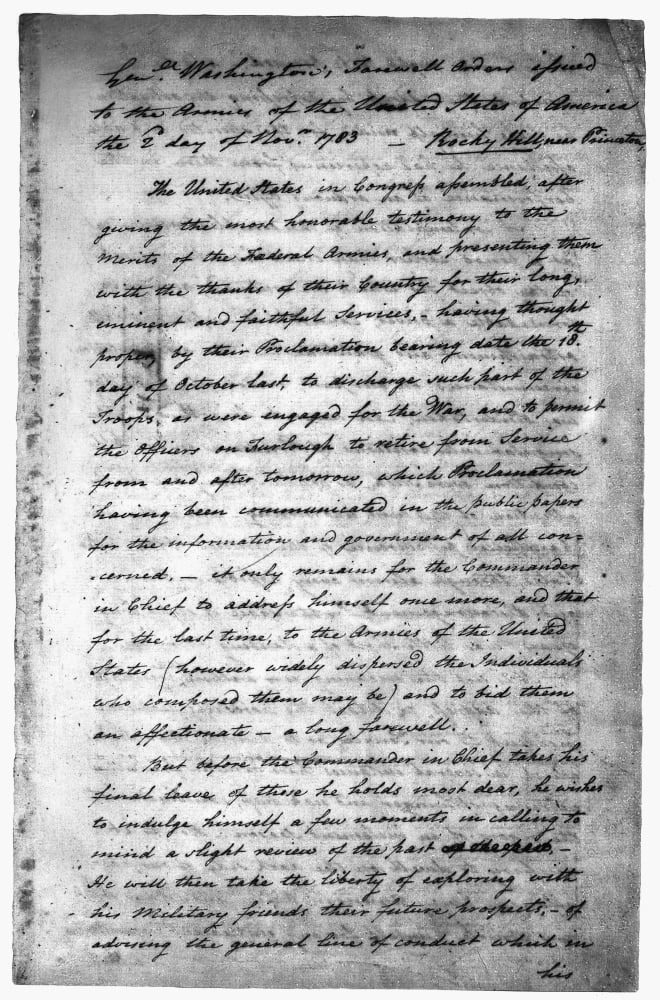 Genl. Washington's Farewell Orders issued
to the Armies of the United States of America
the 2d day of Novr. 1783 — Rocky Hill, near Princeton,
The United States in Congress assembled, after
giving the most honorable testimony to the
Merits of the Fœderal Armies, and presenting them
with the thanks of their Country for their long,
eminent and faithful Services, – having thought
proper, by their Proclamation bearing date the 18th.
day of October last, to discharge such part of the
Troops, as were engaged for the War, and to permit
the Officers on Furlough to retire from Service
from and after tomorrow, which Proclamation
having been communicated in the public papers
for the information and government of all con-
-cerned, – it only remains for the Commander
in Chief to address himself once more, and that
for the last time, to the Armies of the United
States (however widely dispersed the Individuals
who composed them may be) and to bid them
an affectionate – a long farewell.
But before the Commander in Chief takes his
final leave of those he holds most dear, he wishes
to indulge himself a few moments in calling to
mind a slight review of the past –
He will then take the liberty of exploring with
his Military friends their future prospects, – of
advising the general line of conduct which in
his